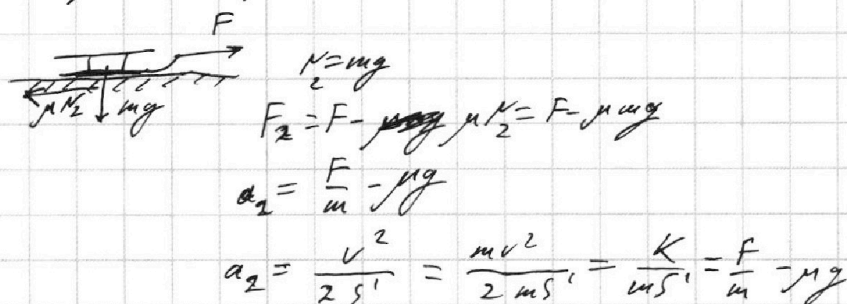 F
μN₂ mg
N₂ = mg
F₂ = F - μN₂ = F - μmg
a₂ = F/m - μg
a₂ = v²/2S' = mv²/2mS' = K/mS' = F/m - μg